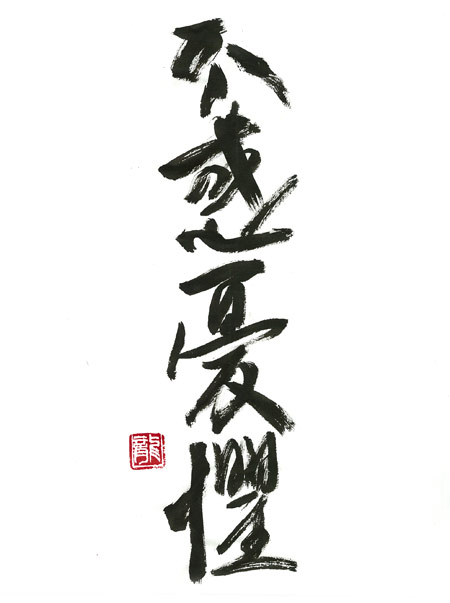 不惑憂懼
龍